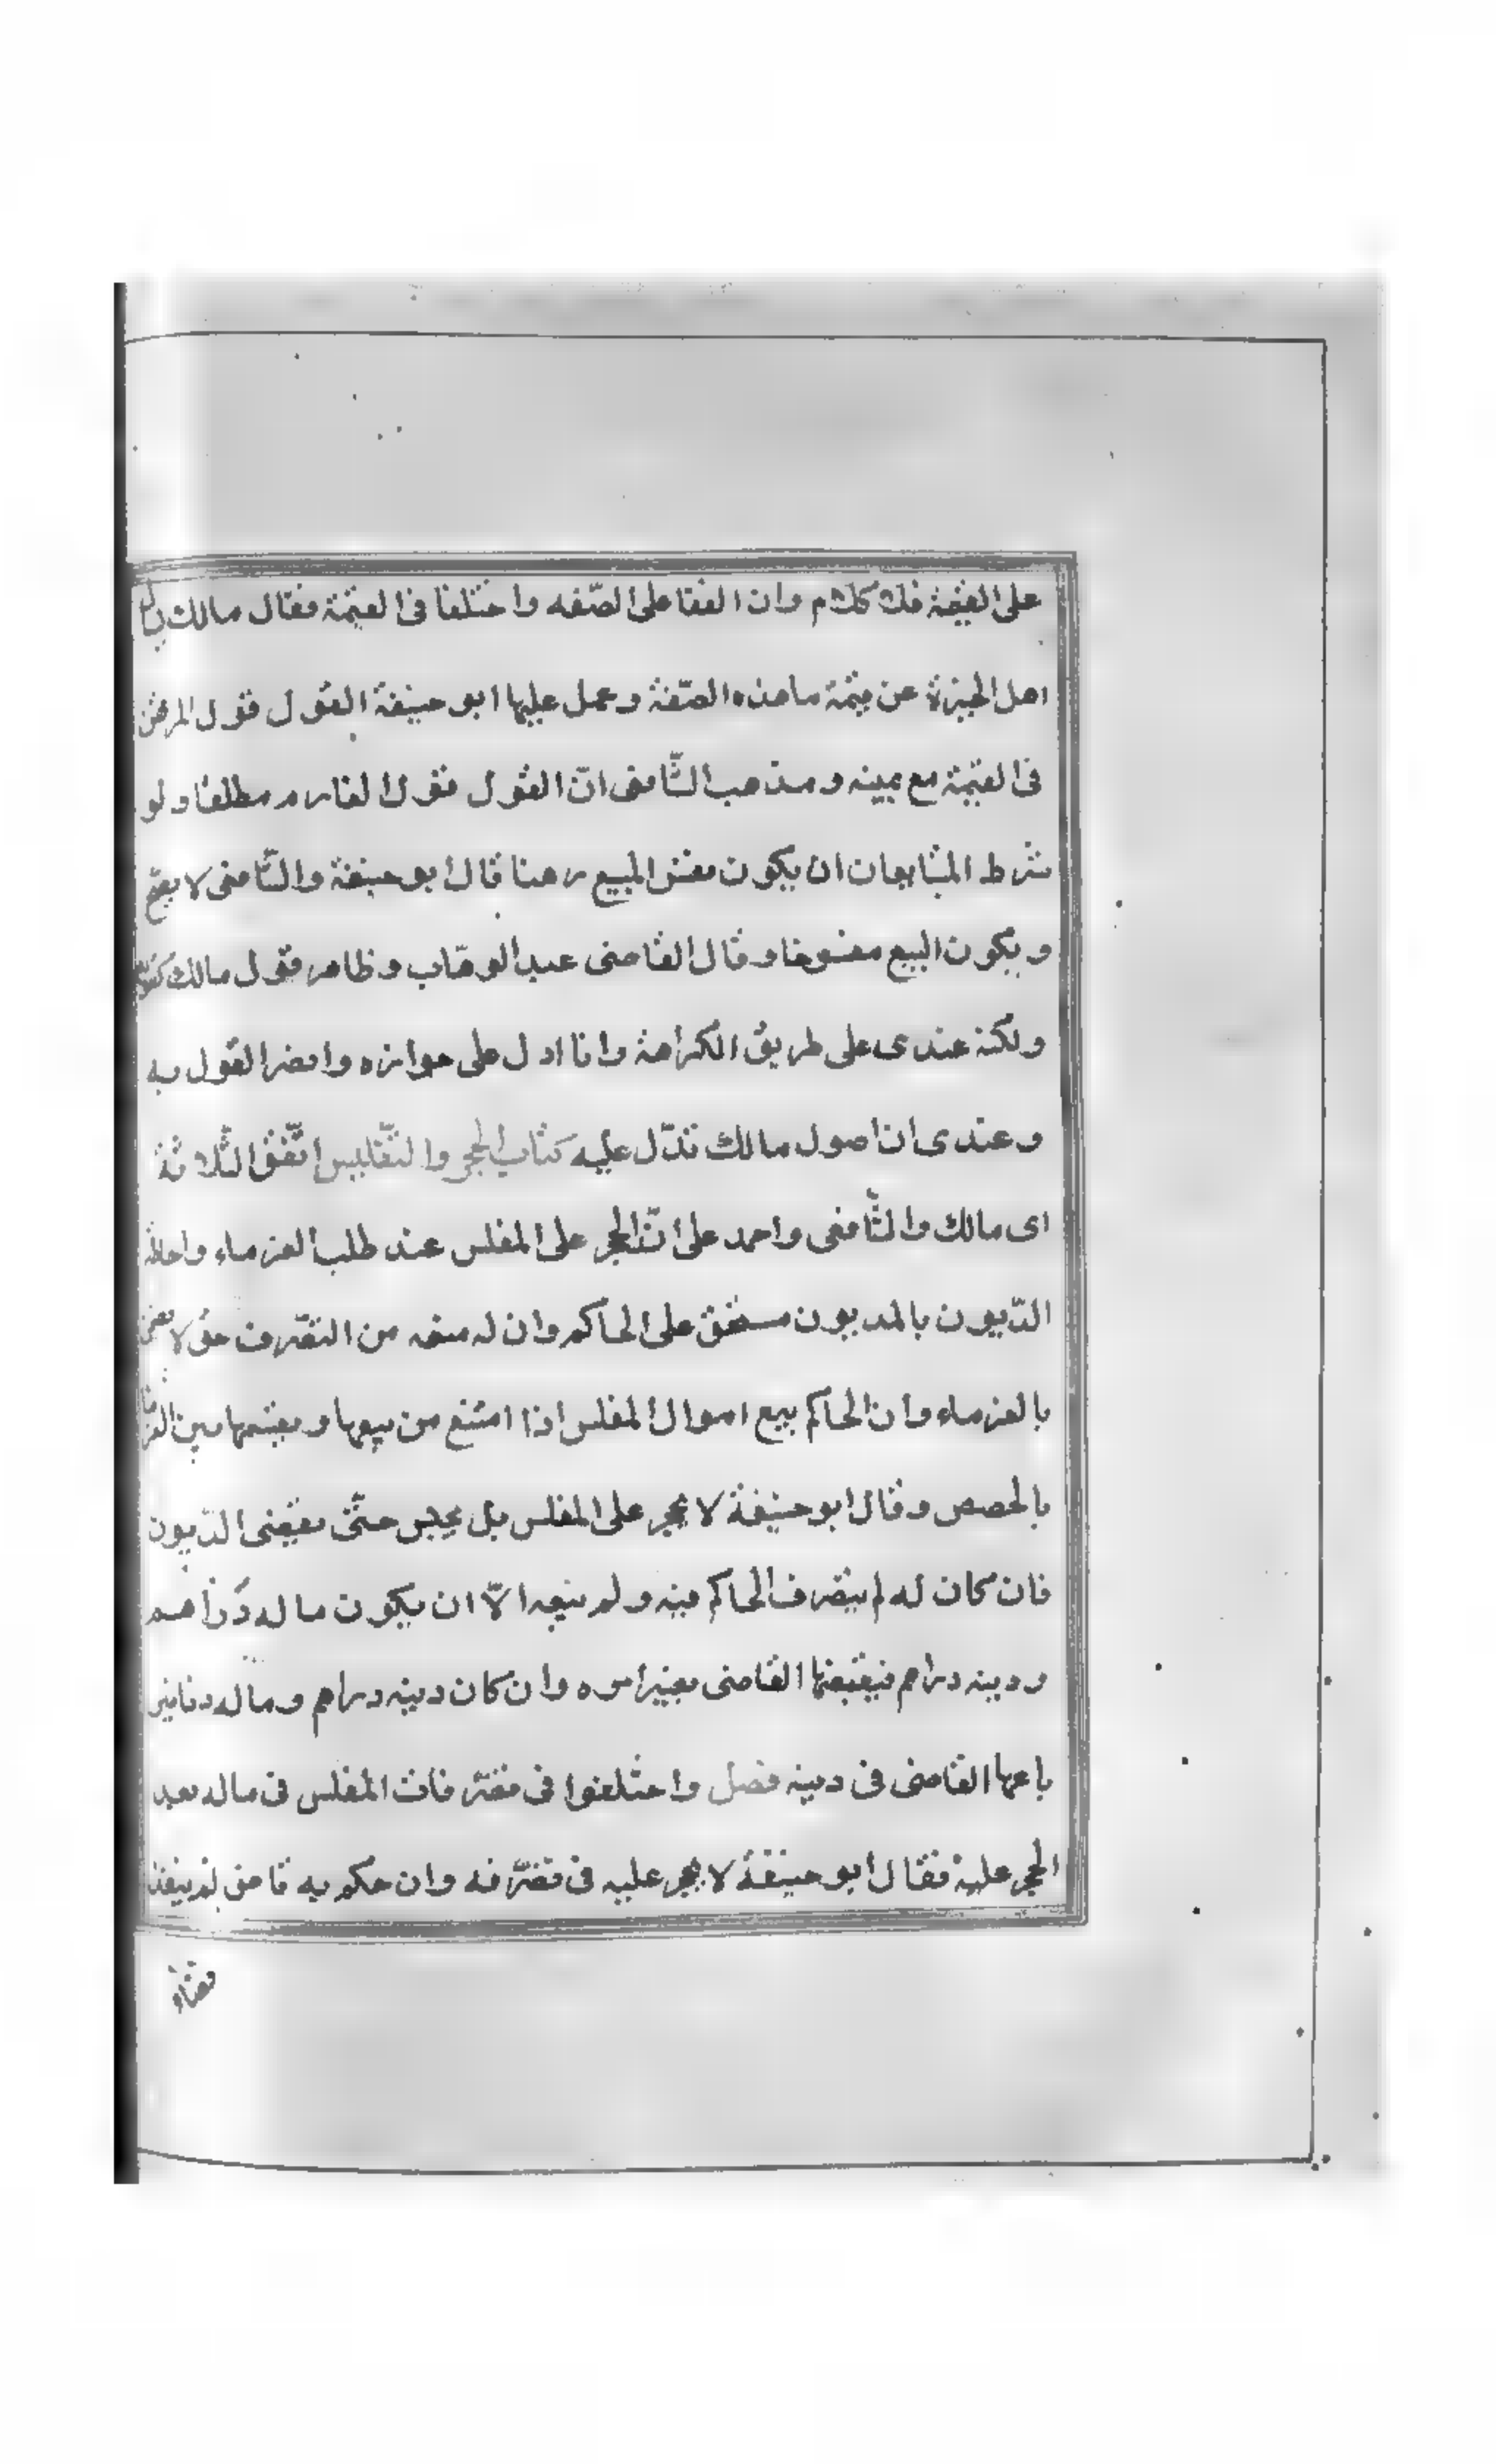 على القيمة فلا كلام وان اتفقا على الصّفه واختلفا فى القيمة فقال مالك يسأل
اهل الخبرة عن قيمة ما هذه الصّفة وعمل عليها ابو حنيفة القول قول المرتهن
فى القيمة مع يمينه ومذهب الشّافعى انّ القول قول الغارم مطلقا ولو
شرط المتبايعان ان يكون نفس المبيع رهنا قال ابو حنيفة والشّافعى لا يصحّ
ويكون البيع مفسوخا وقال القاضى عبد الوهّاب وظاهر قول مالك كقولهما
ولكنه عندى على طريق الكراهة وانا ادل على جوازه وانصر القول به
وعندى ان اصول مالك تدّل عليه كتاب الحجر والتّفليس اتّفق الثّلاثة
اى مالك والشّافعى واحمد على انّ الحجر على المفلس عند طلب الغرماء واحاطة
الدّيون بالمديون مستحق على الحاكم وان له منعه من التصّرف حتى لا يضر
بالغرماء وان الحاكم يبيع اموال المفلس اذا امتنع من بيعها ويقسمها بين الغرماء
بالحصص وقال ابو حنيفة لا يحجر على المفلس بل يحبس حتّى يقضى الدّيون
فان كان له لم يتصرف الحاكم فيه ولم يبعه الّا ان يكون ماله دراهم
ودينه دراهم فيقبضها القاضى بغير امره وان كان دينه دراهم وماله دنانير
باعها القاضى فى دينه فصل واختلفوا فى تصّرفات المفلس فى ماله بعد
الحجر عليه فقال ابو حنيفة لا يحجر عليه فى تصّرفه وان حكم به قاض لم ينفذ
قضاؤه